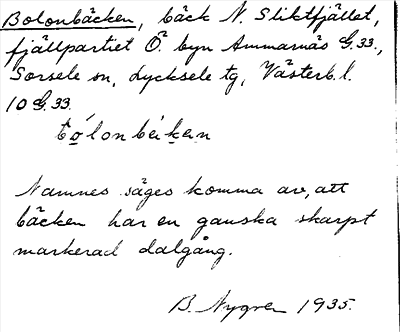 Bolonbäcken, bäck N. Sliktfjället,
fjällpartiet Ö. byn Ammarnäs G.33.,
Sorsele sn, Lycksele tg, Västerb. l.
10 G.33.
bólonbäkən
Namnes säges komma av, att
bäcken har en ganska skarpt
markerad dalgång.
B. Nygren 1935.